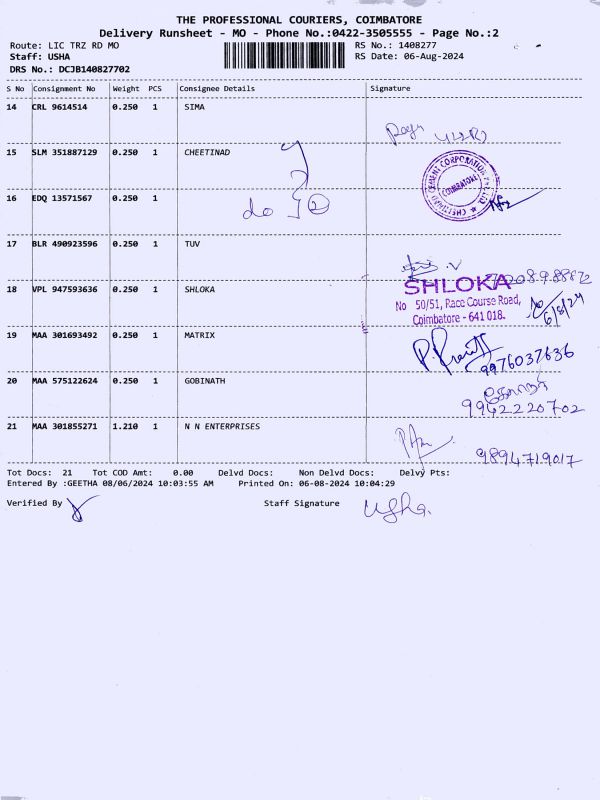 THE PROFESSIONAL COURIERS, COIMBATORE
Delivery Runsheet - MO - Phone No.:0422-3505555 - Page No.:2
Route: LIC TRZ RD MO RS No.: 1408277
Staff: USHA RS Date: 06-Aug-2024
DRS No.: DCJB140827702
S No Consignment No Weight PCS Consignee Details Signature
14 CRL 9614514 0.250 1 SIMA
15 SLM 351887129 0.250 1 CHEETINAD
CHETTINAD CEMENT CORPORATION PVT LTD COIMBATORE
16 EDQ 13571567 0.250 1 do 2
17 BLR 490923596 0.250 1 TUV
18 VPL 947593636 0.250 1 SHLOKA
SHLOKA
No 50/51, Race Course Road,
Coimbatore - 641 018.
6/8/24
19 MAA 301693492 0.250 1 MATRIX
9976037636
20 MAA 575122624 0.250 1 GOBINATH
9942220702
21 MAA 301855271 1.210 1 N N ENTERPRISES
9894719017
Tot Docs: 21 Tot COD Amt: 0.00 Delvd Docs: Non Delvd Docs: Delvy Pts:
Entered By :GEETHA 08/06/2024 10:03:55 AM Printed On: 06-08-2024 10:04:29
Verified By Staff Signature Usha.